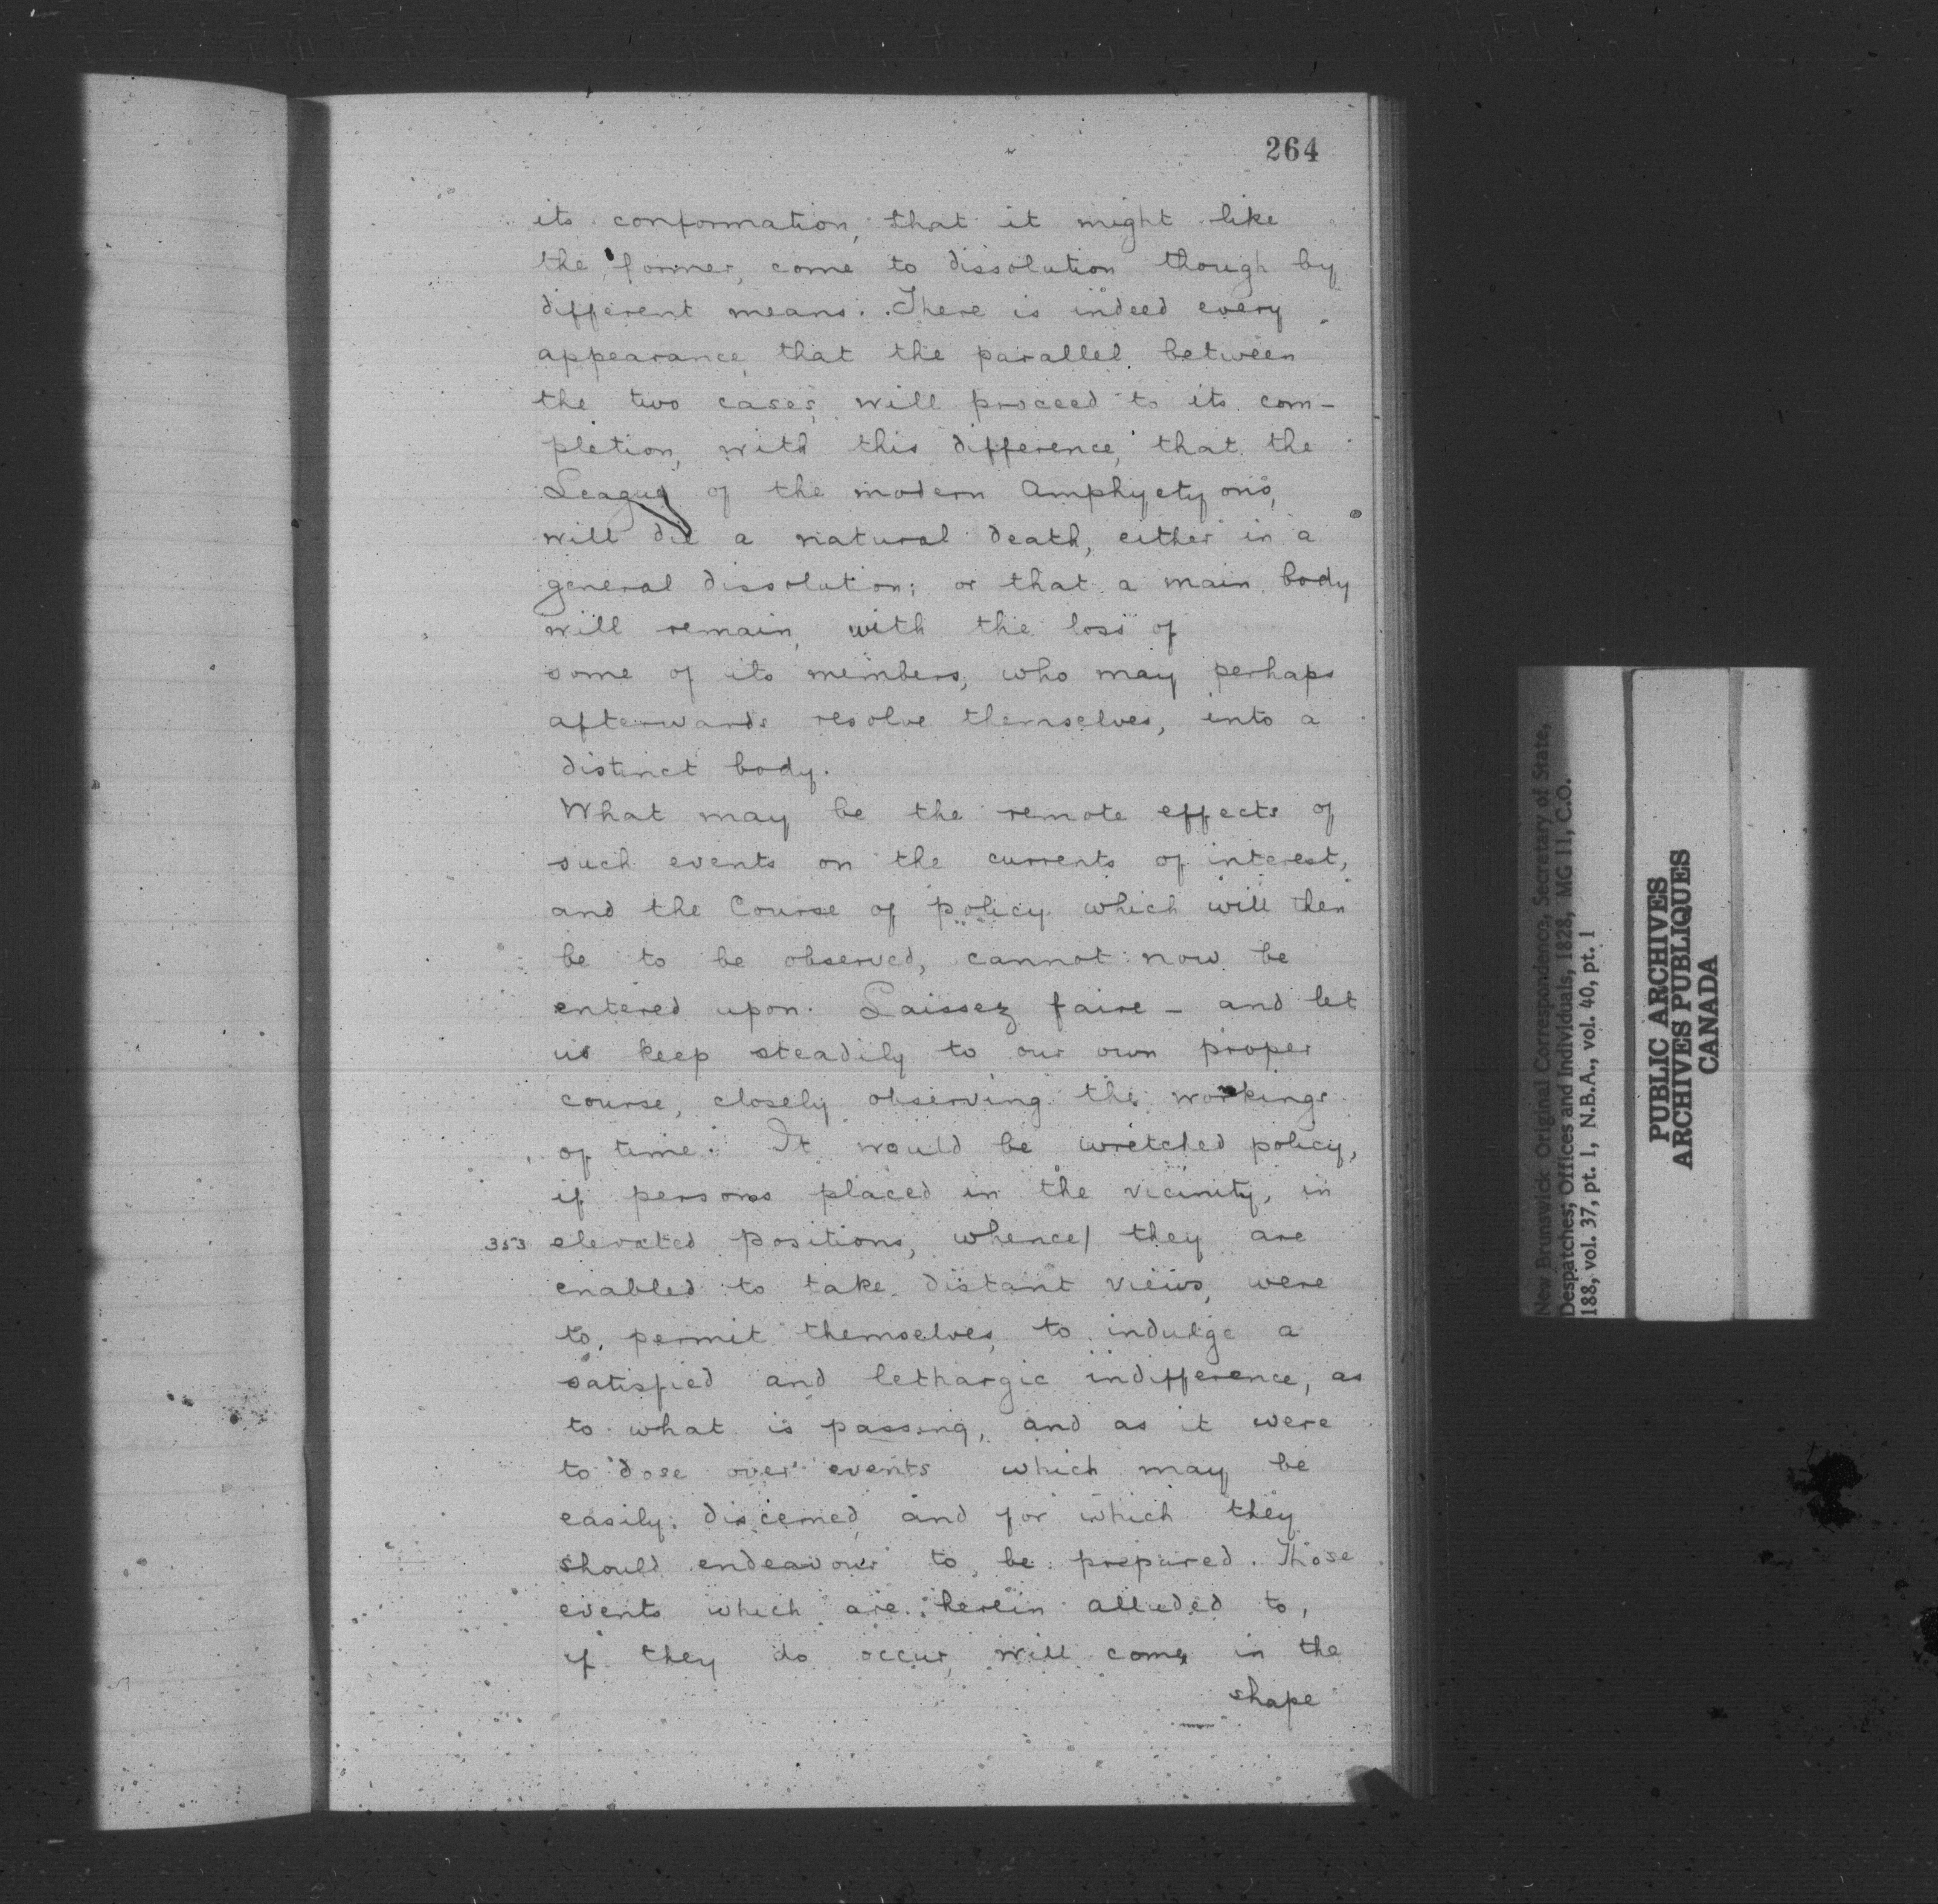 264
its conformation, that it might like
the former, come to dissolution though by
different means. There is indeed every
appearance, that the parallel between
the two cases, will proceed to its com-
pletion, with this difference, that the
League of the modern Amphyctyons,
will die a natural death, either in a
general dissolution; or that a main body
will remain, with the loss of
some of its members, who may perhaps
afterwards resolve themselves, into a
distinct body.
What may be the remote effects of
such events on the currents of interest,
and the Course of policy which will then
be to be observed, cannot now be
entered upon. Laissez faire - and let
us keep steadily to our own proper
course, closely observing the workings
of time. It would be wretched policy,
if persons placed in the vicinity, in
353 elevated positions, whence/ they are
enabled to take distant views, were
to permit themselves, to indulge a
satisfied and lethargic indifference, as
to what is passing, and as it were
to dose over events which may be
easily discerned, and for which they
should endeavour to be prepared. Those
events which are herein alluded to,
if they do occur, will come in the
shape
New Brunswick Original Correspondence, Secretary of State,
Despatches; Offices and Individuals, 1828, MG 11, C.O.
188, vol. 37, pt. 1, N.B.A., vol. 40, pt. 1
PUBLIC ARCHIVES
ARCHIVES PUBLIQUES
CANADA